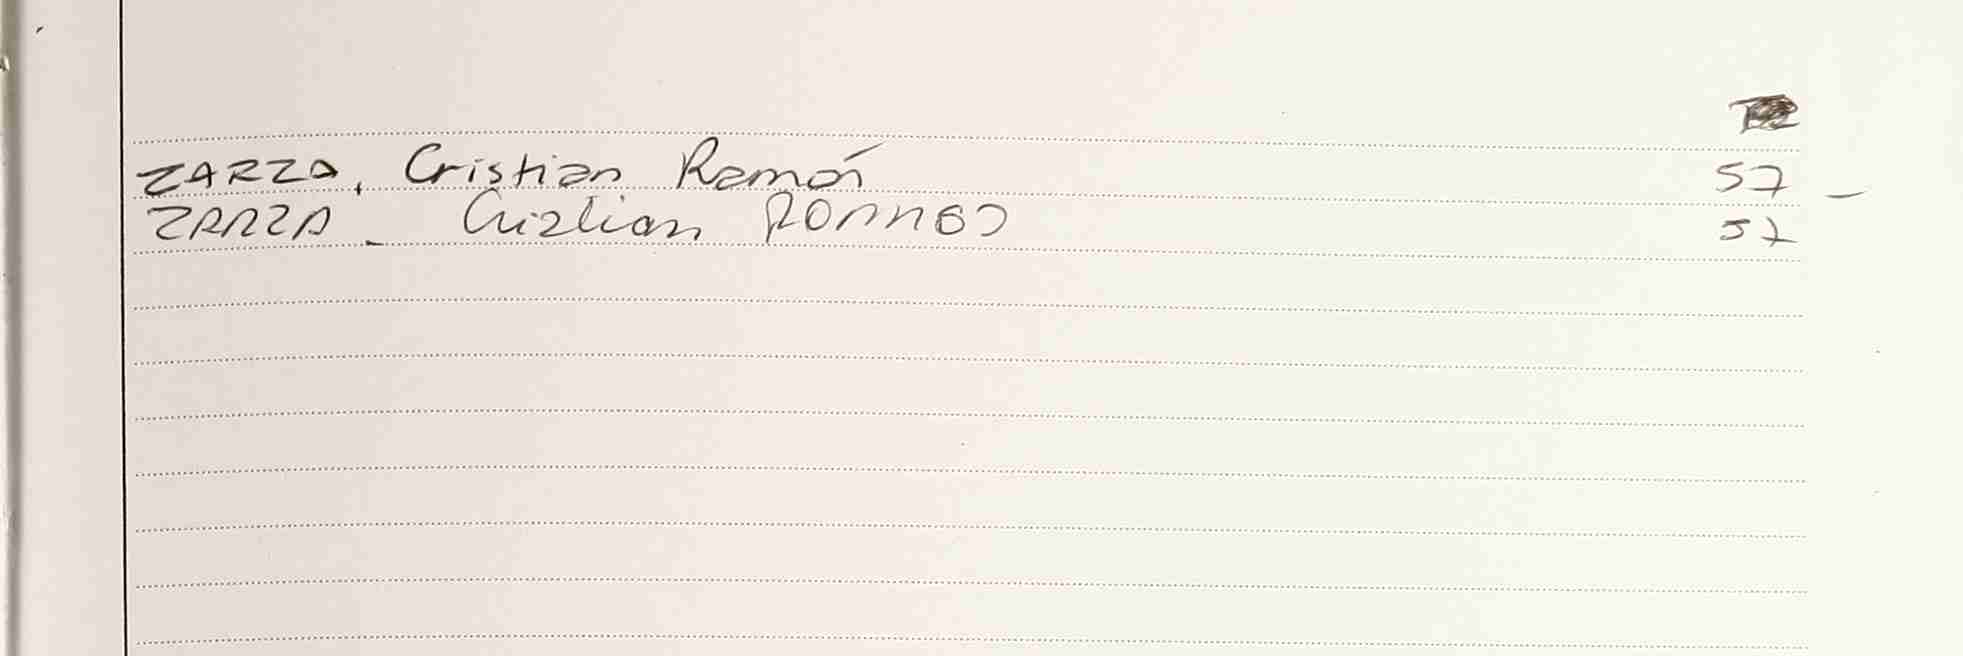 ZARZA, Cristian Ramón 57 -
ZARZA - Cristian 57